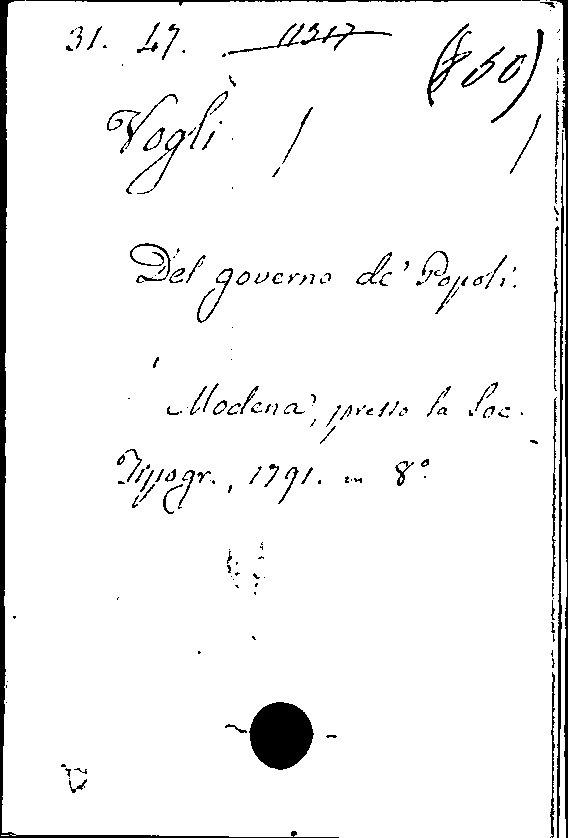 31. 47. 11317 (850)
Vogli / /
Del governo de' Popoli.
Modena, presso la Soc.
Tipogr., 1791. in 8º.